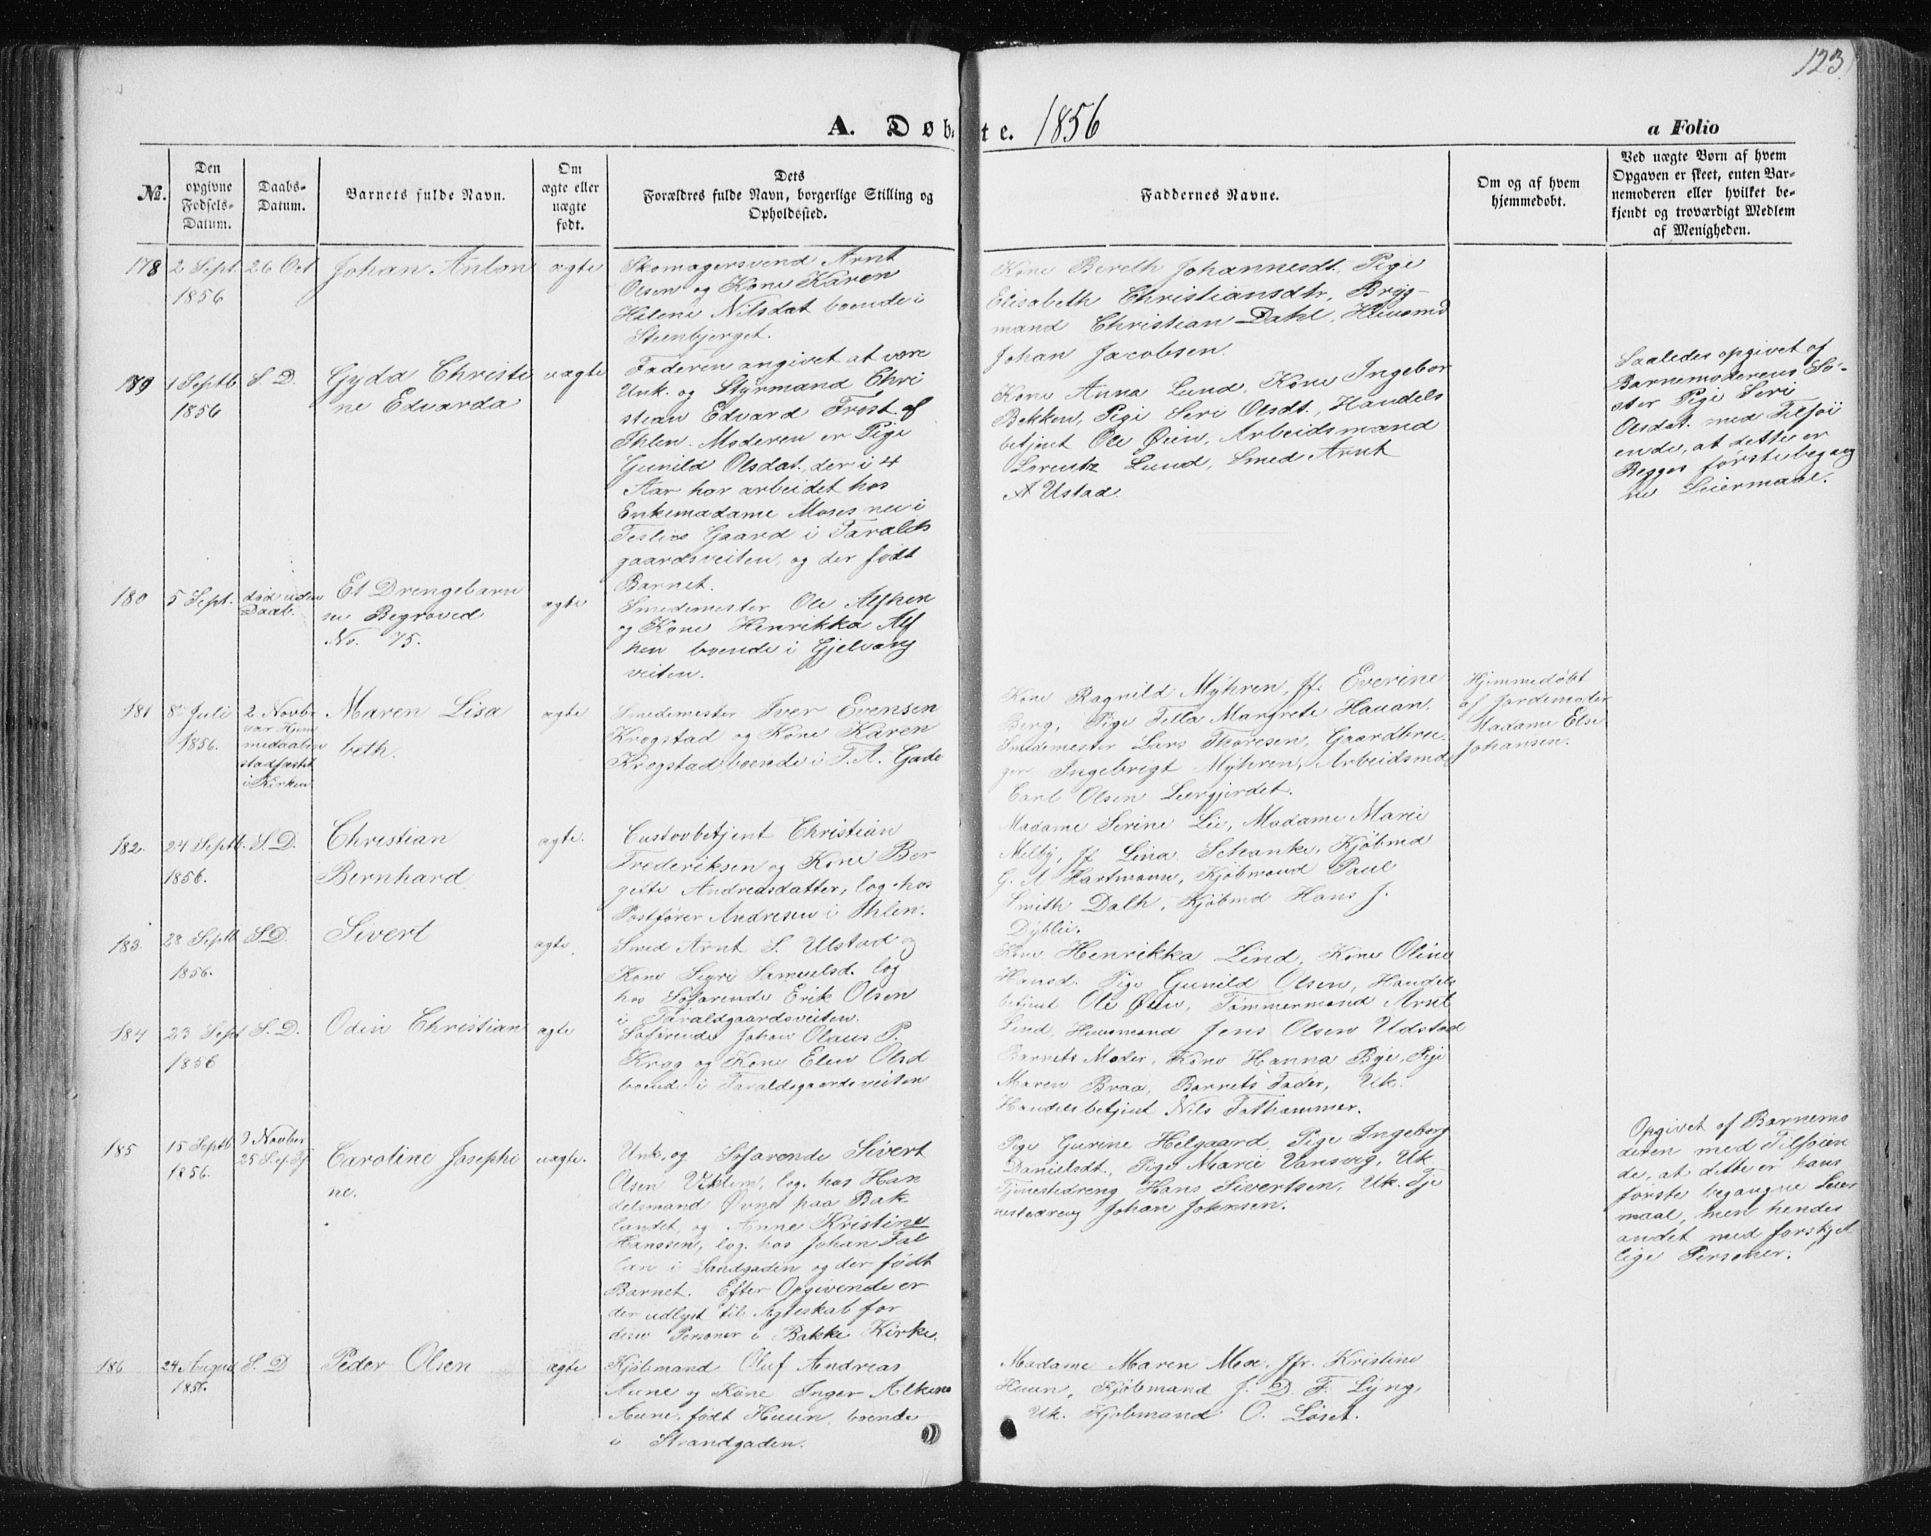 123
A. Døbte. 1856
a Folio
No.
Den opgivne Fødsels-Datum.
Daabs-Datum.
Barnets fulde Navn.
Om ægte eller uægte født.
Dets Forældres fulde Navn, borgerlige Stilling og Opholdssted.
Faddernes Navne.
Om og af hvem hjemmedøbt.
Ved uægte Børn af hvem Opgaven er skeet, enten Barnemoderen eller hvilket bekjendt og troværdigt Medlem af Menigheden.
178
2 Sept.
1856
26 Oct
Johan Anton
ægte
Skomagersvend Arnt
Olsen og Kone Karen
Helene Nilsdat boende i
Steenbjerget.
Kone Bereth Johannesdt, Pige
Elisabeth Christiansdtr, Bryg-
mand Christian Dahl, Huusmd
Johan Jacobsen.
179
1 Septb
1856
S. D.
Gyda Christi
ne Edvarda
uægte
Faderen angivet at være
Unk. og Styrmand Chri
stian Edvard Frost af
Ihlen. Moderen er Pige
Gunild Olsdat, der i 4
Aar har arbeidet hos
Enkemadame Moses nu i
Gaard i Taralds
gaardsveiten, og der født
Barnet.
Kone Anna Lund, Kone Ingebor
Bekken, Pige Seri Olsdt., Handels
betjent Ole Øien, Arbeidsmand
Lorentz Lund, Smed Arnt
A Ustad
Saaledes opgivet af
Barnemoderens Sø-
ster Pige Seri
Olsdat. med Tilføi
ende, at dette er
Begges første begang
ne Leiermaal.
180
5 Sept.
død uden
Daab.
Et Drengebarn
se Begraved
No. 75.
ægte
Smedemester Ole Alfhen
og Kone Henrikka Alf
hen boende i Gjelvang
veiten.
181
8de Juli
1856.
2 Novbr
var Hjem
medaaben
stadfæstet
i Kirken
Maren Lisa
beth.
ægte
Smedemester Iver Evensen
Krogstad og Kone Karen
Krogstad boende i T. A. Gade
Kone Ragnild Myhren, Jf. Everine
Berg, Pige Tella Margrete Hauan,
Smedemester Lars Thoresen, Gaardbru
ger Ingebrigt Myhren, Arbeidsmd
Carl Olsen Leergjerdet.
Hjemmedøbt
af Jordemoder
Madame Else
Johansen.
182.
24 Septb.
1856.
S. D.
Christian
Bernhard
ægte.
Custovbetjent Christian
Frederiksen og Kone Ber
gitte Andreasdatter, log. hos
Postfører Andresen i Ihlen.
Madame Serine Lie, Madame Marie
Melby, Jf. Lina Schanke, Kjøbmd
G. A Hartmann, Kjøbmand Paul
Smith Dalh, Kjøbmd Hans J.
Dyblie.
183
28 Septb
1856.
S. D.
Sivert
ægte
Smed Arnt S. Ustad og
Kone Sigri Samuelsd. log
hos Søfarende Erik Olsen
i Taraldgaardsveiten.
Kone Henrikka Lind, Kone Oline
Hansd. Pige Gunild Olsen, Handels
betjent Ole Øien, Tømmermand Arnt
Lind, Huusmand Jens Olsen Udstad
184
23 Sept
1856
S. D.
Odin Christian
ægte
Søfarende Johan Olaus P.
Krog og Kone Elen Olsd
boende i Taraldsgaardsveiten
Barnets Moder, Kone Hanna Bye, Pige
Maren Braa, Barnets Fader, Uk.
Handelsbetjent Nils Tathammer.
185
15 Septb
1856.
2 Novber
Caroline Josephi
ne.
uægte.
Unk. og Søfarende Sivert
Olsen, log. hos Han
delsmand Øvne paa Bak
landet, og Anne Kristine
Hanssen, log. hos Johan Fal
lan i Sandgaden og der født
Barnet. Efter Opgivende er
der udlyst til Ægteskab for
disse Personer i Bakke Kirke.
Pige Gurine Helgaard, Pige Ingeborg
Danielsdt, Pige Marie Vansvig, Uk
Tjenestedreng Hans Sivertsen, Uk. Tje
nestedreng Johan Johnsen.
Opgivet af Barnemo
deren med Tilføien
de, at dette er hans
første begangne Leier
maal, men hendes
andet med forskjel
lige Personer.
186
24 August
1856.
S. D
Peder Olsen
ægte
Kjøbmand Oluf Andreas
Aune og Kone Inger Alkena
Aune, født Huun, boende
i Strandgaden.
Madame Maren Moe, Jfr. Kristine
Huun, Kjøbmand J. D. F. Lyng,
Uk. Kjøbmand O. Løset.